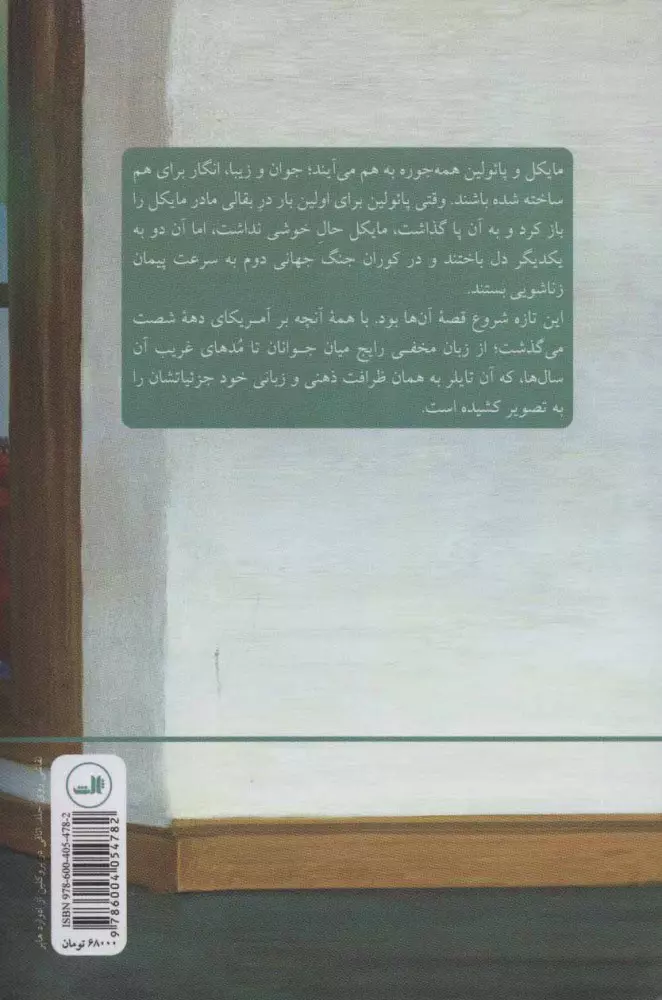 مایکل و پائولین همه‌جوره به هم می‌آیند؛ جوان و زیبا، انگار برای هم
ساخته شده باشند. وقتی پائولین برای اولین بار درِ بقالی مادر مایکل را
باز کرد و به آن پا گذاشت، مایکل حالِ خوشی نداشت، اما آن دو به
یکدیگر دل باختند و در کوران جنگ جهانی دوم به سرعت پیمان
زناشویی بستند.
این تازه شروع قصهٔ آن‌ها بود. با همهٔ آنچه بر آمریکای دههٔ شصت
می‌گذشت؛ از زبان مخفی رایج میان جوانان تا مُدهای غریب آن
سال‌ها، که آن تایلر به همان ظرافت ذهنی و زبانی خود جزئیاتشان را
به تصویر کشیده است.
نقاشی روی جلد: اتاقی در بروکلین از ادوارد هاپر
ثالث
ISBN 978-600-405-478-2
9786004054782
۶۸۰۰۰ تومان